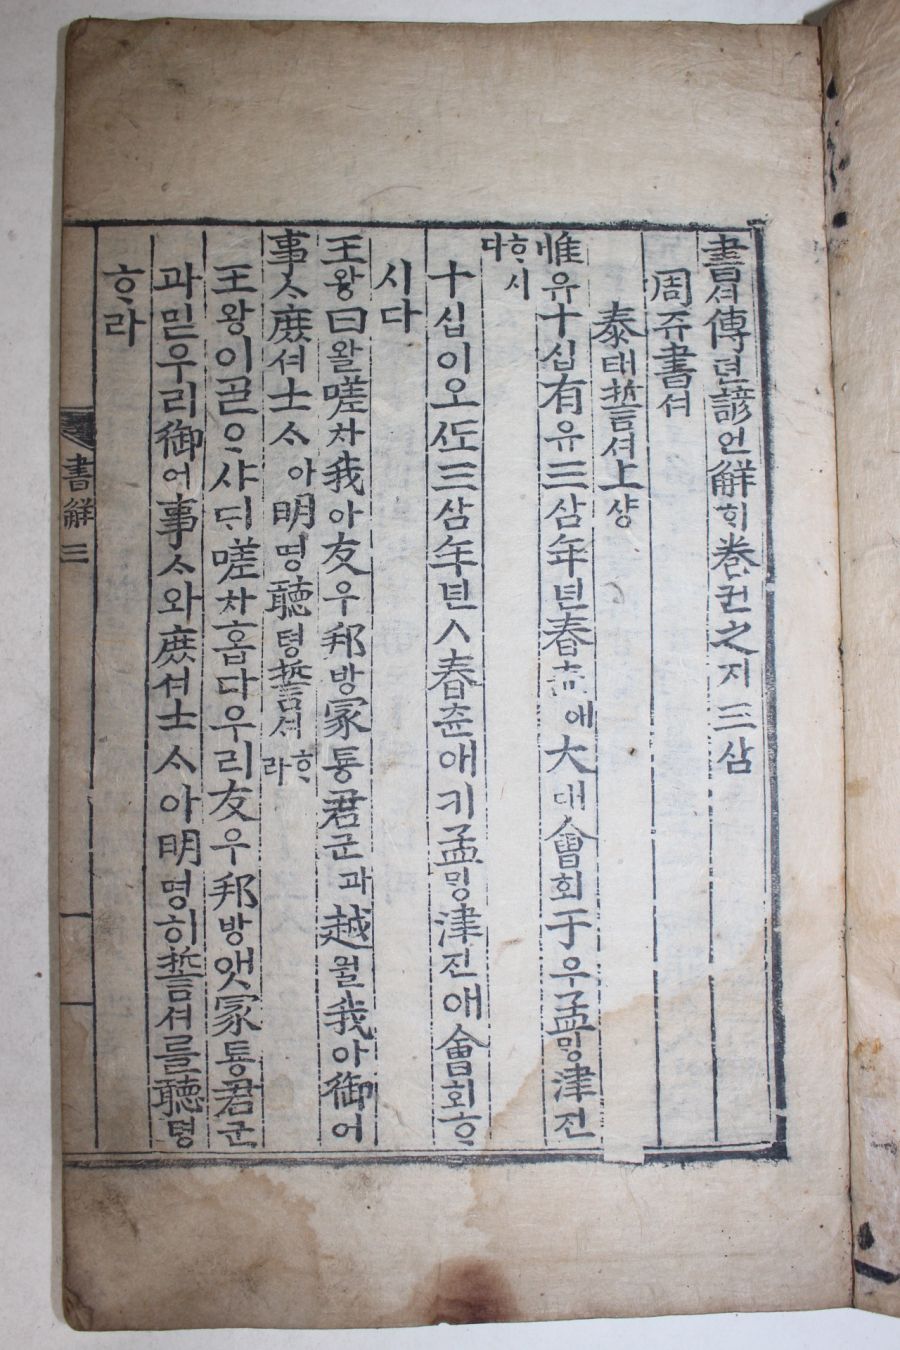 書셔傳뎐諺언解ᄒᆡ卷권之지三삼
周쥬書셔
泰태誓셔上샹
惟유十십有유三삼年년春츈에大대會회于우孟ᄆᆡᆼ津진
ᄒᆞ시다
十십이오ᄯᅩ三삼年년ㅅ春츈애키孟ᄆᆡᆼ津진애會회ᄒᆞ
시다
王왕曰왈嗟차我아友우邦방冢통君군과越월我아御어
事ᄉᆞ庶셔士ᄉᆞ아明명聽텽誓셔ᄒᆞ라
王왕이ᄀᆞᆯᄋᆞ샤ᄃᆡ嗟차홉다우리友우邦방앳冢통君군
과믿우리御어事ᄉᆞ와庶셔士ᄉᆞ아明명히誓셔를聽텽
ᄒᆞ라
書解三 一